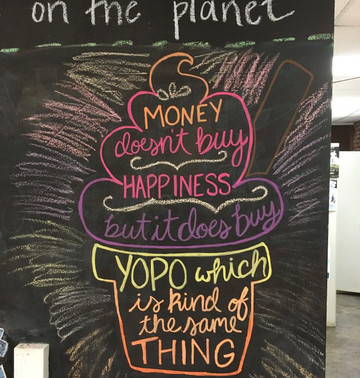 on the planet
MONEY
doesn't buy
HAPPINESS
but it does buy
YOPO which
is kind of
the same
THING